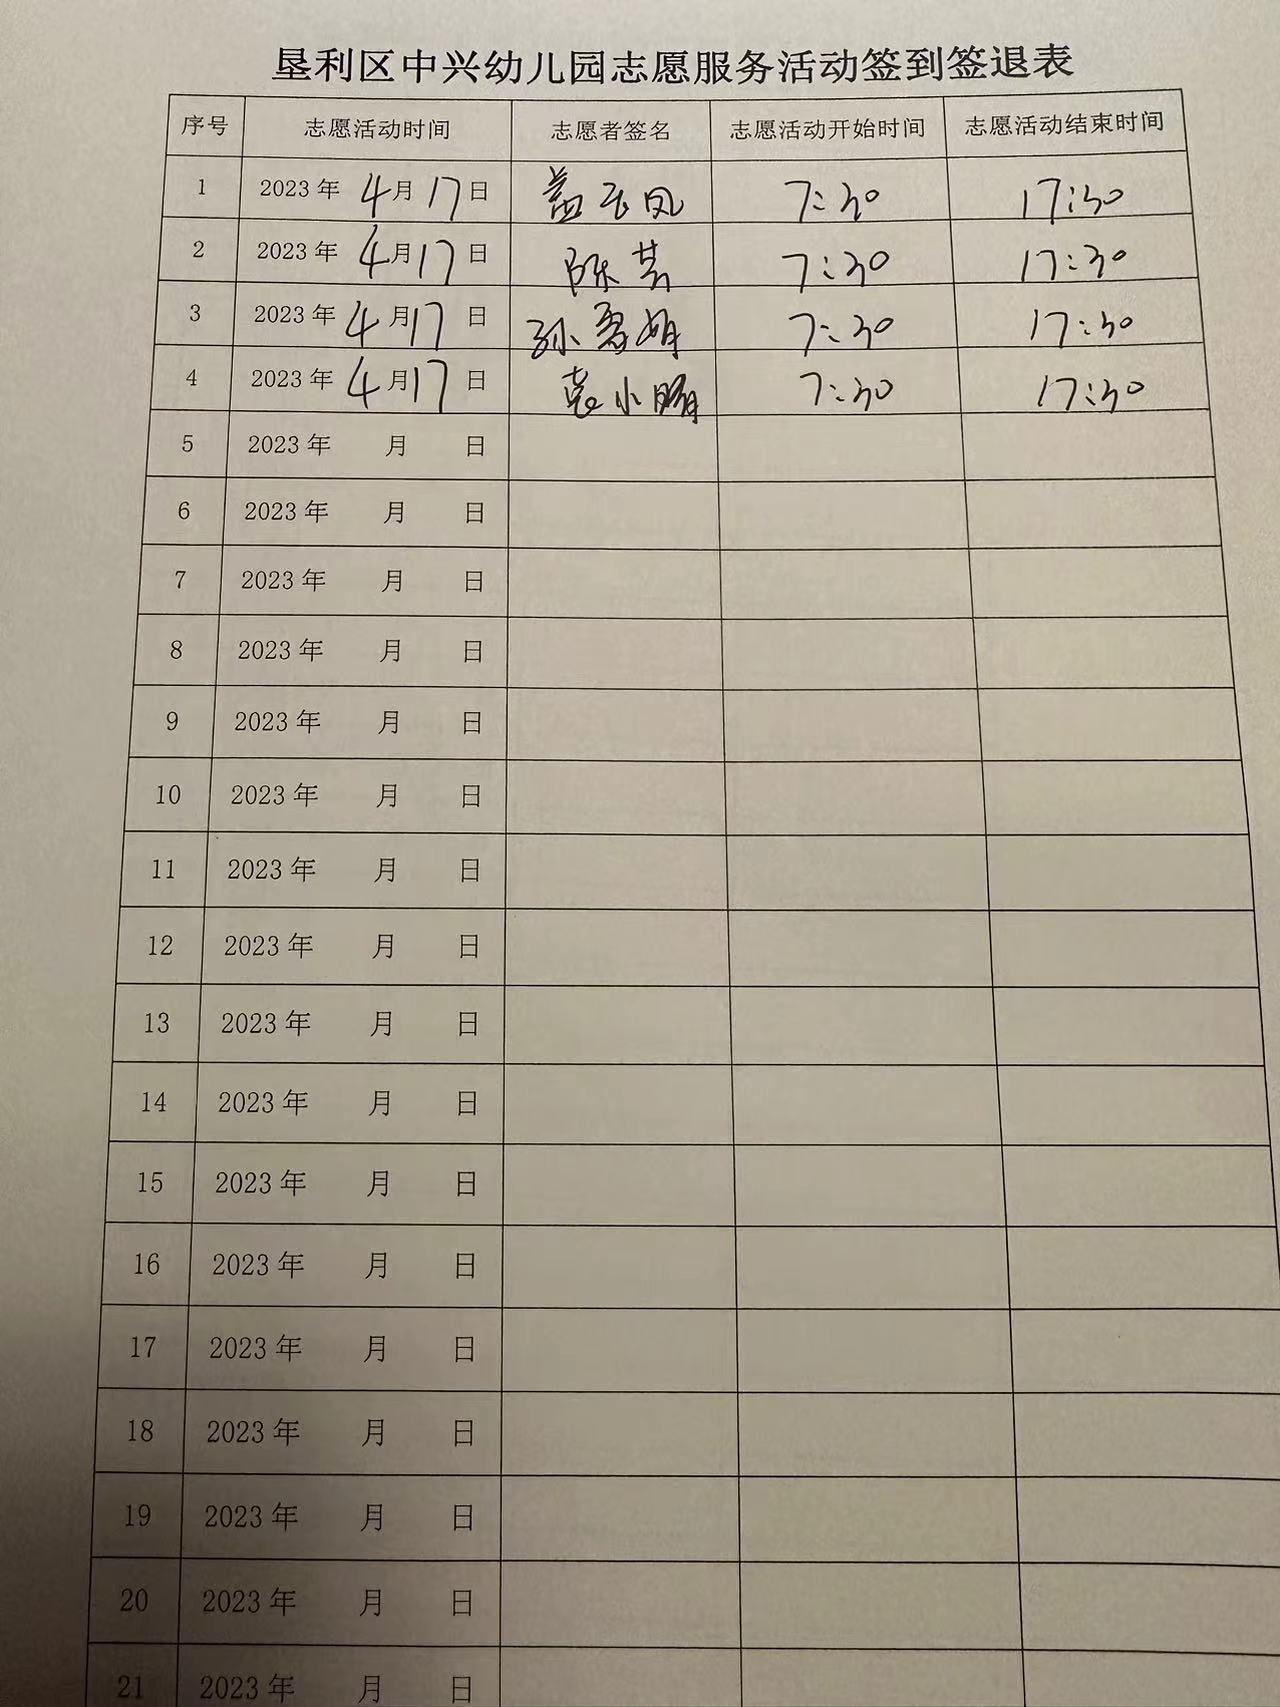 垦利区中兴幼儿园志愿服务活动签到签退表
序号 志愿活动时间 志愿者签名 志愿活动开始时间 志愿活动结束时间
1 2023年 4月17日 盖玉凤 7:30 17:30
2 2023年 4月17日 陈芳 7:30 17:30
3 2023年 4月17日 孙 娟 7:30 17:30
4 2023年 4月17日 袁小 7:30 17:30
5 2023年 月 日
6 2023年 月 日
7 2023年 月 日
8 2023年 月 日
9 2023年 月 日
10 2023年 月 日
11 2023年 月 日
12 2023年 月 日
13 2023年 月 日
14 2023年 月 日
15 2023年 月 日
16 2023年 月 日
17 2023年 月 日
18 2023年 月 日
19 2023年 月 日
20 2023年 月 日
21 2023年 月 日